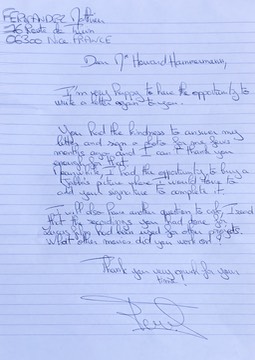 FERNANDEZ Mathieu
76 Route de Turin
06300 Nice FRANCE
Dear Mr Howard Hammermann,
I'm very happy to have the opportunity to
write a letter again to you.
You had the kindness to answer my
letter and sign a photo for me few
months ago and I can't thank you
enough for that.
Meanwhile, I had the opportunity to buy a
picture where I would love to
add your signature to complete it.
I will also have another question to ask, I read
that the recordings you had done for
had been used for other projects.
What other movies did you work on?
Thank you very much for your
time!